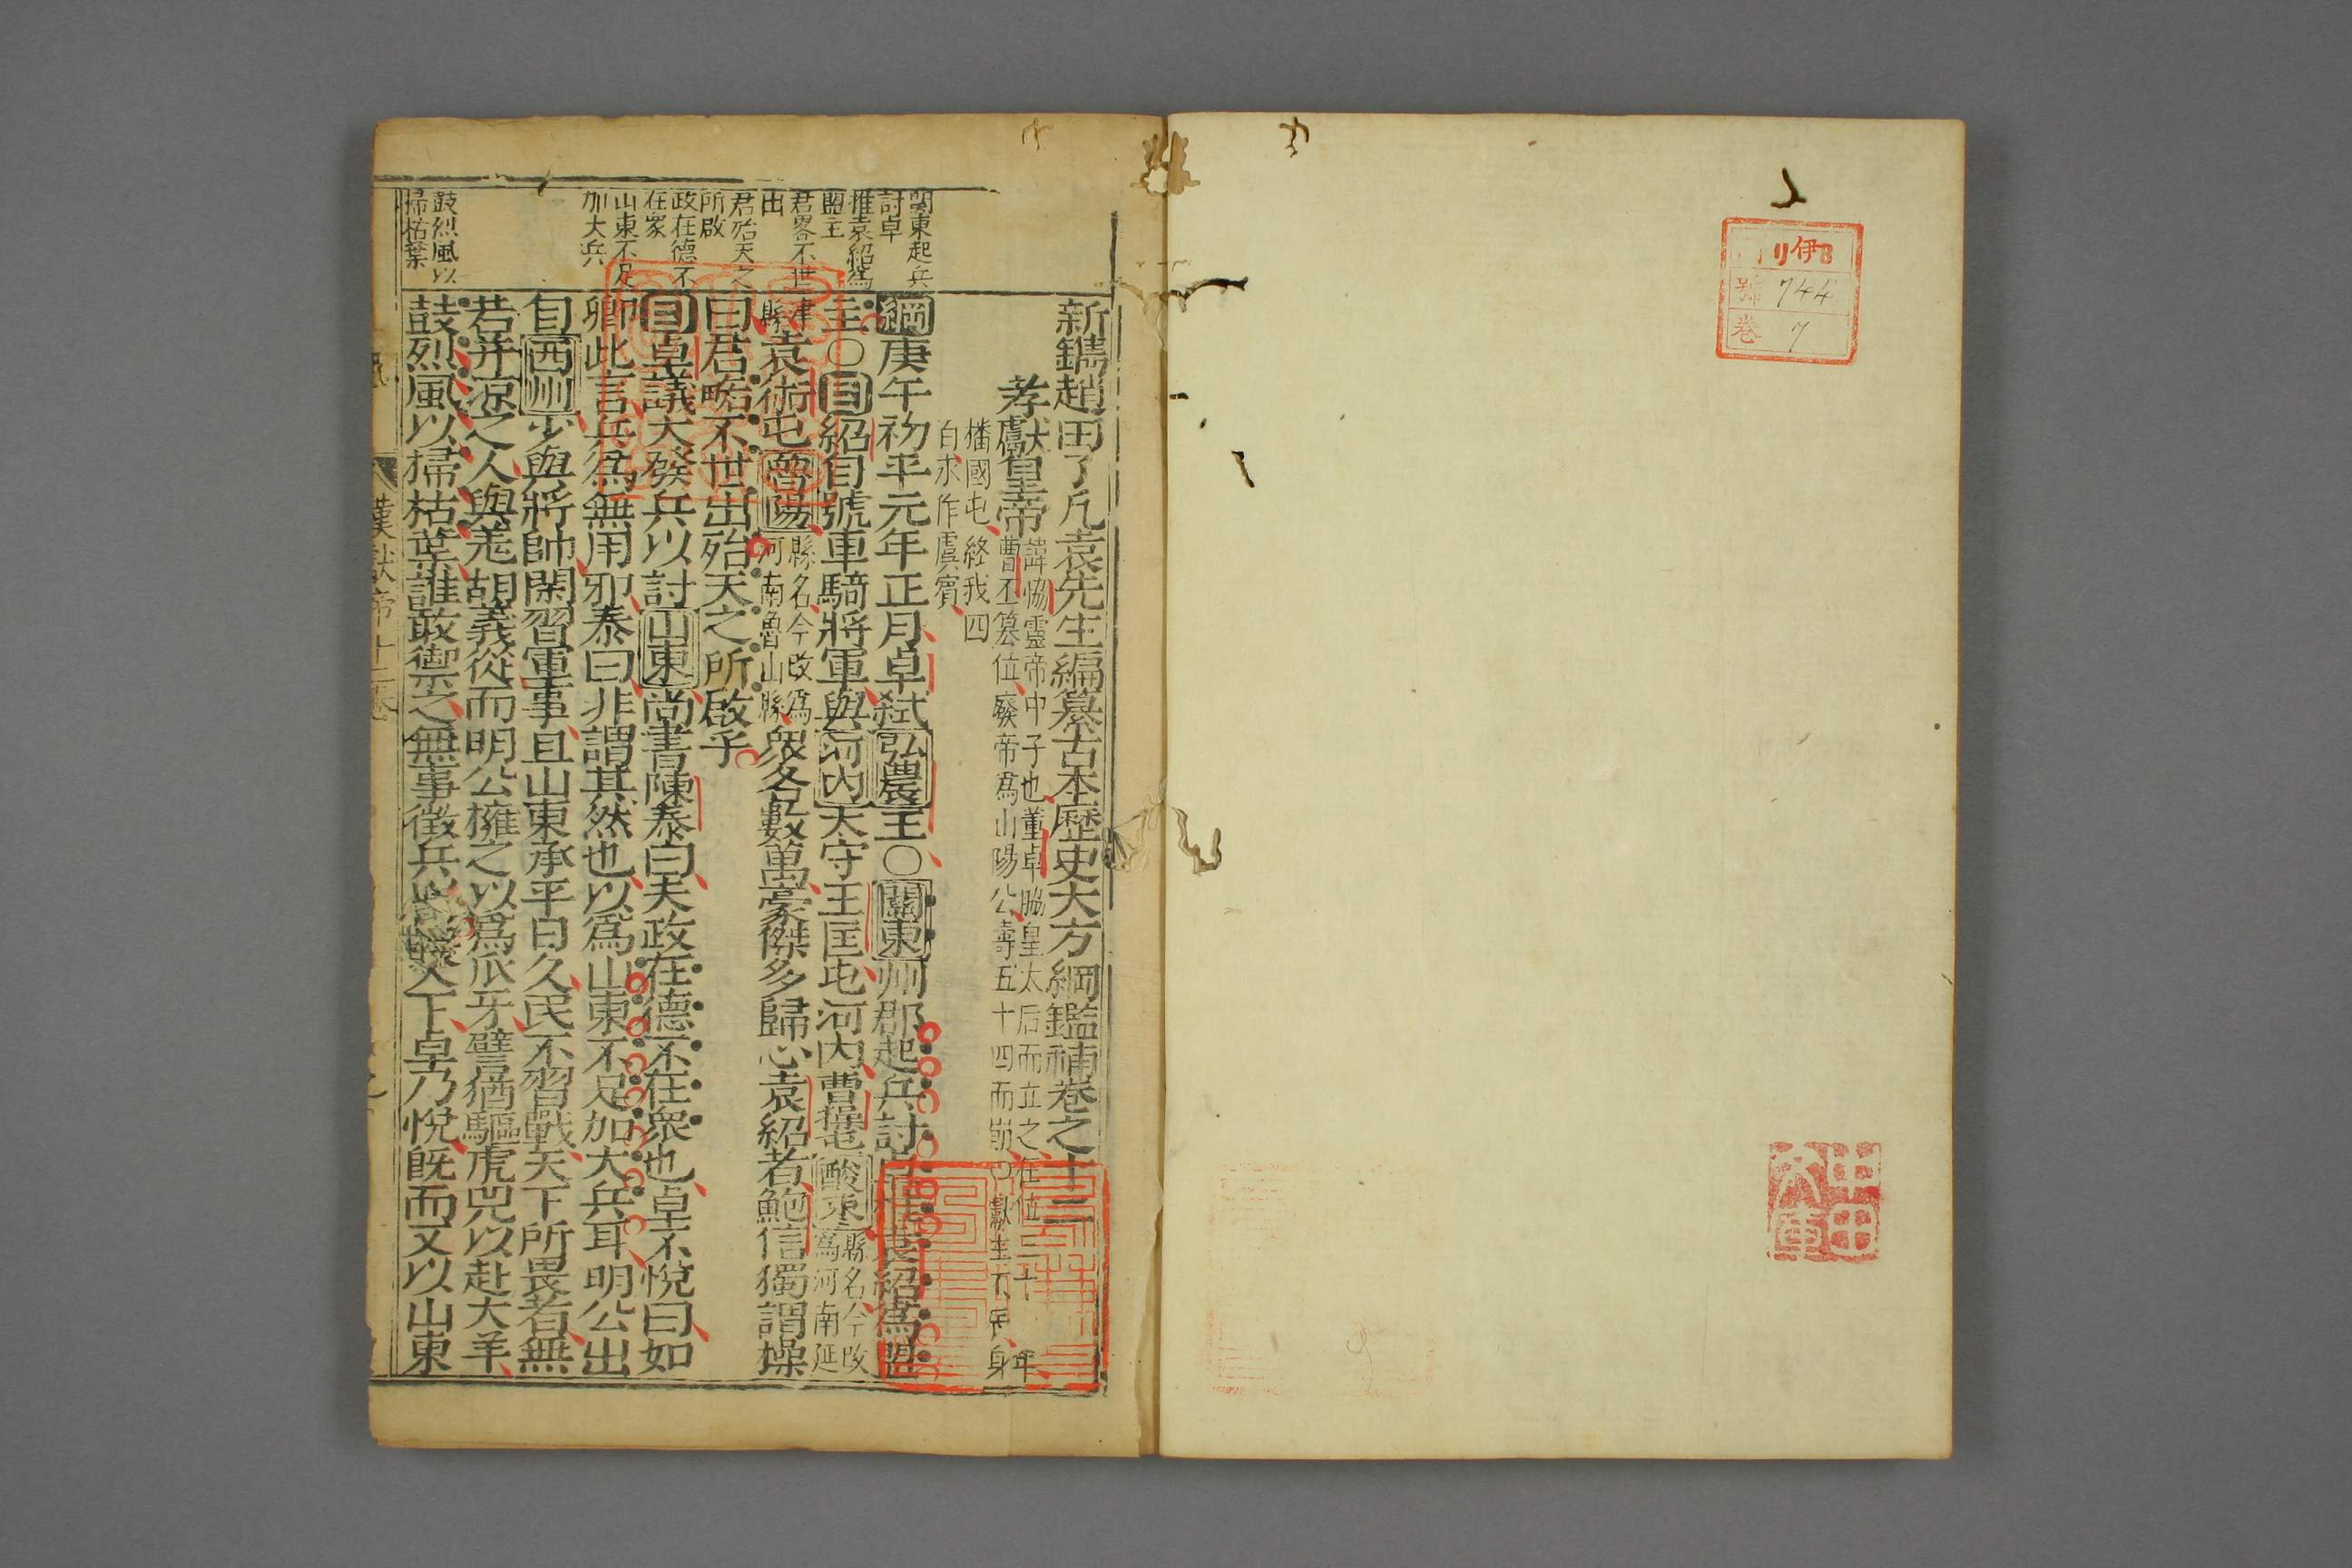 リ伊
號 744
卷 7
新鐫趙田了凡袁先生編纂古本歷史大方綱鑑補卷之十二
孝獻皇帝
諱恊靈帝中子也董卓脇皇太后而立之在位三十一年
曹丕篡位廢帝爲山陽公壽五十四而崩〇獻生不辰身
播國屯終我四
百永作虞賓
綱庚午初平元年正月卓弑弘農王〇關東州郡起兵討卓推袁紹爲盟
主〇目紹自號車騎將軍與河內太守王匡屯河內曹操屯酸棗
縣名今改
爲河南延
津
縣
袁術屯魯陽
縣名今改爲
河南魯山縣
衆各數萬豪傑多歸心袁紹者鮑信獨謂操
曰君略不世出殆天之所啟乎
目卓議大發兵以討山東尚書陳泰曰夫政在德不在衆也卓不悅曰如
卿此言兵爲無用邪泰曰非謂其然也以爲山東不足加大兵耳明公出
自西州少與將帥閑習軍事且山東承平日久民不習戰天下所畏者無
若并涼之人與羌胡義從而明公擁之以爲爪牙譬猶驅虎兕以赴犬羊
鼓烈風以掃枯葉誰敢禦之無事徵兵天下卓乃悅旣而又以山東
關東起兵
討卓
推袁紹爲
盟主
君畧不世
出
君殆天之
所啟
政在德不
在衆
山東不足
加大兵
鼓烈風以
掃枯葉
漢獻帝十二卷